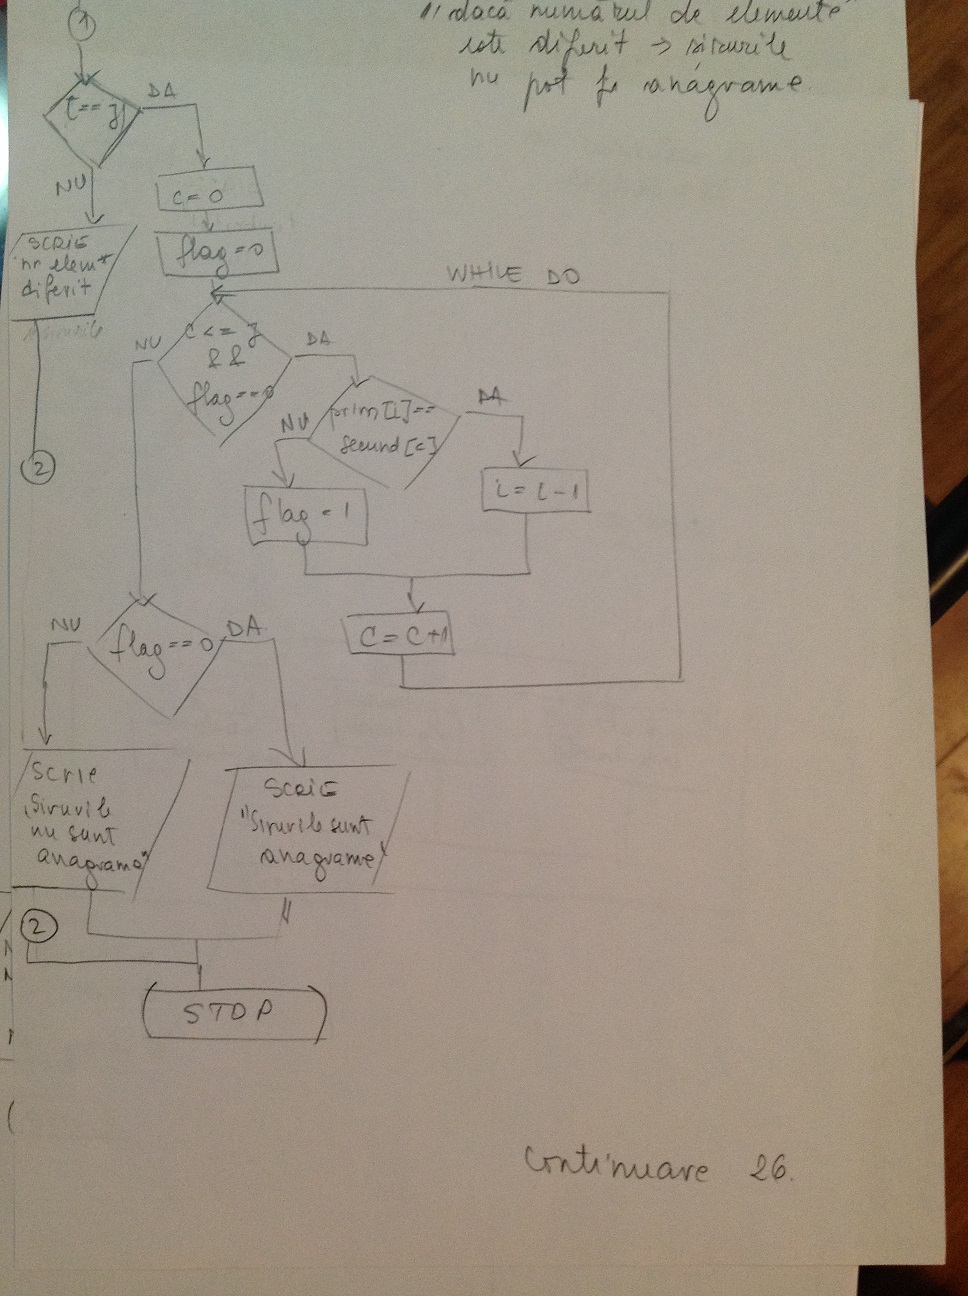 1) dacă numărul de elemente
este diferit → sirurile
nu pot fi anagrame.
1
DA
NU
c=0
flag=0
SCRIE
diferit
2
WHILE DO
NU
DA
&&
flag==0
NU
DA
secund[c]
flag=1
i=i-1
c=c+1
NU
DA
flag==0
Scrie
"Sirurile
nu sunt
anagrame"
SCRIE
"Sirurile sunt
anagrame"
2
STOP
Continuare 26.